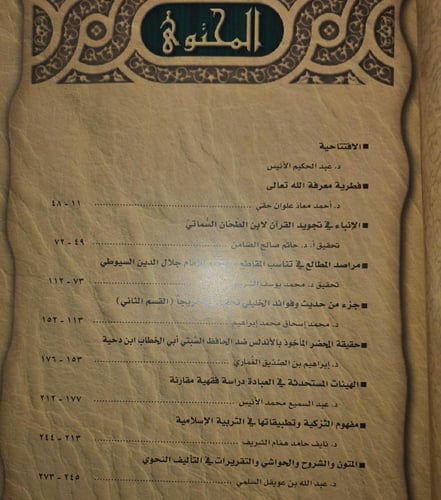 المحتوى
■ الافتتاحية
د. عبد الحكيم الأنيس
■ فطرية معرفة الله تعالى
د. أحمد معاذ علوان حقي ........ ١١ - ٤٨
■ الإنباء في تجويد القرآن لابن الطحان السُّماتي
تحقيق أ. د. حاتم صالح الضامن ........ ٤٩ - ٧٢
■ مراصد المطالع في تناسب المقاطع للإمام جلال الدين السيوطي
تحقيق د. محمد يوسف ........ ٧٣ - ١١٢
■ جزء من حديث وفوائد الخليلي ( القسم الثاني )
د. محمد إسحاق محمد إبراهيم ........ ١١٣ - ١٥٢
■ حقيقة المحضر المأخوذ بالأندلس ضد الحافظ السبتي أبي الخطاب ابن دحية
د. إبراهيم بن الصّدّيق الغُماري ........ ١٥٣ - ١٧٦
■ الهيئات المستحدثة في العبادة دراسة فقهية مقارنة
د. عبد السميع محمد الأنيس ........ ١٧٧ - ٢١٢
■ مفهوم التزكية وتطبيقاتها في التربية الإسلامية
د. نايف حامد همام الشريف ........ ٢١٣ - ٢٤٤
■ المتون والشروح والحواشي والتقريرات في التأليف النحوي
د. عبد الله بن عويقل السلمي ........ ٢٤٥ - ٢٧٣